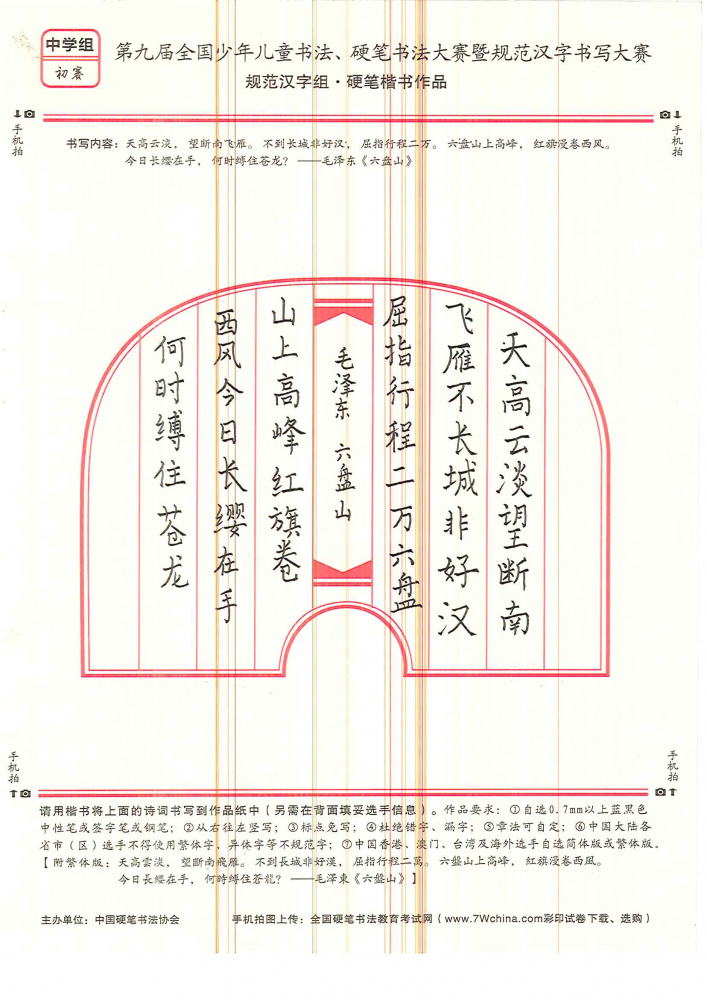 中学组
初赛
第九届全国少年儿童书法、硬笔书法大赛暨规范汉字书写大赛
规范汉字组·硬笔楷书作品
手机拍
手机拍
书写内容：天高云淡， 望断南飞雁。 不到长城非好汉， 屈指行程二万。 六盘山上高峰， 红旗漫卷西风。
今日长缨在手， 何时缚住苍龙？ ——毛泽东《六盘山》
天高云淡望断南
飞雁不长城非好汉
屈指行程二万六盘
毛泽东 六盘山
山上高峰红旗卷
西风今日长缨在手
何时缚住苍龙
手机拍
手机拍
请用楷书将上面的诗词书写到作品纸中（另需在背面填妥选手信息）。作品要求：①自选0.7mm以上蓝黑色
中性笔或签字笔或钢笔；②从右往左竖写；③标点免写；④杜绝错字、漏字；⑤章法可自定；⑥中国大陆各
省市（区）选手不得使用繁体字、异体字等不规范字；⑦中国香港、澳门、台湾及海外选手自选简体版或繁体版。
【附繁体版：天高雲淡， 望斷南飛雁。 不到長城非好漢， 屈指行程二萬。 六盤山上高峰， 紅旗漫卷西風。
今日長纓在手， 何時縛住蒼龍？ ——毛澤東《六盤山》】
主办单位：中国硬笔书法协会
手机拍图上传：全国硬笔书法教育考试网（www.7Wchina.com彩印试卷下载、选购）